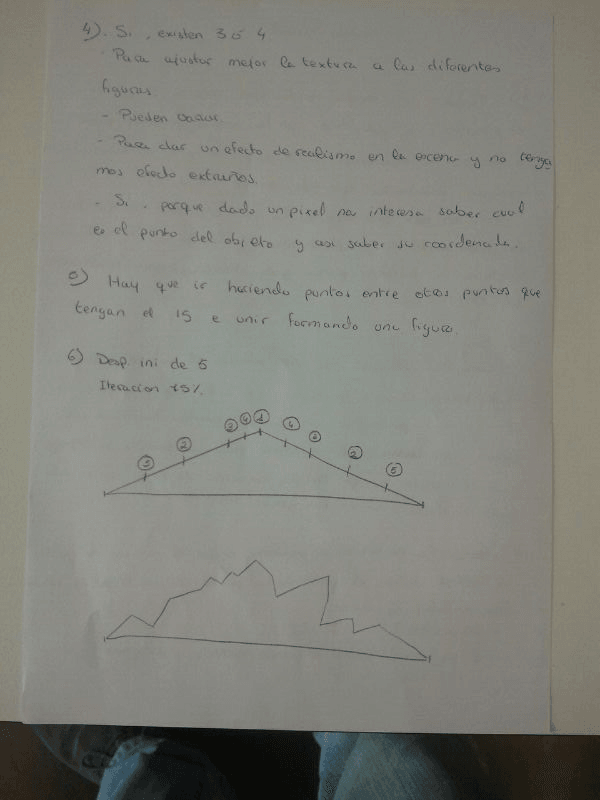 4). Si, existen 3 ó 4
- Para ajustar mejor la textura a las diferentes
figuras.
- Pueden variar.
- Para dar un efecto de realismo en la escena y no tenga
mos efecto extraños.
- Si, porque dado un pixel nos interesa saber cual
es el punto del objeto y asi saber su coordenada.
5) Hay que ir haciendo puntos entre otros puntos que
tengan el 15 e unir formando una figura.
6) Desp. ini de 5
Iteracion 75%.
3 2 3 4 1 4 2 5